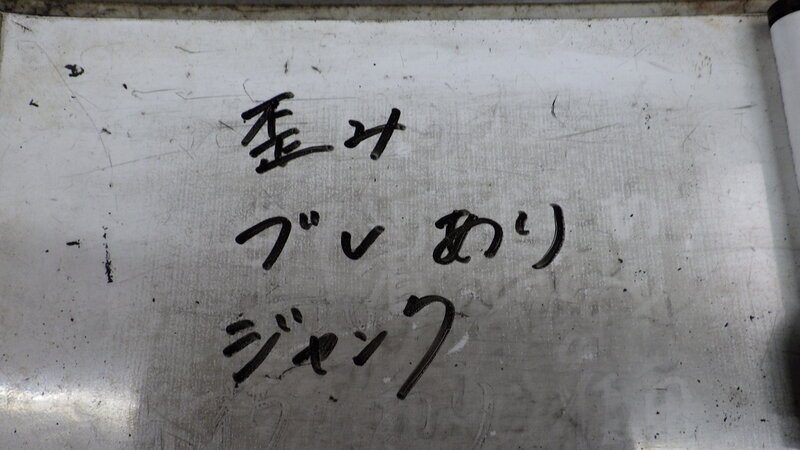 歪み
ブレあり
ジャンク